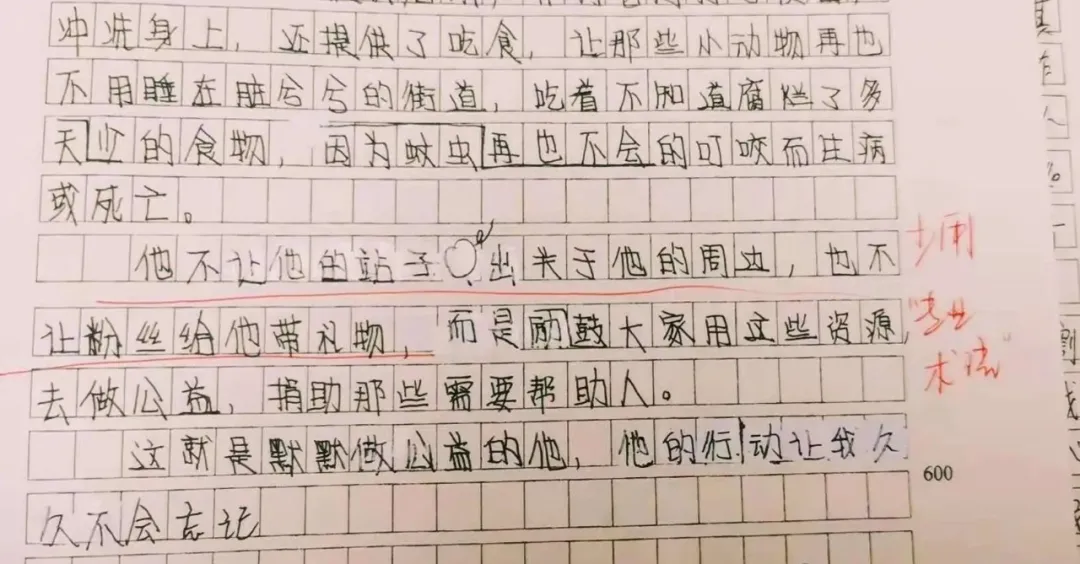 冲洗身上，还提供了吃食，让那些小动物再也
不用睡在脏兮兮的街道，吃着不知道腐烂了多
天少的食物，因为蚊虫再也不会的叮咬而生病
或死亡。
他不让他的站子出关于他的周边，也不
让粉丝给他带礼物，而是励鼓大家用这些资源，
去做公益，捐助那些需要帮助人。
这就是默默做公益的他，他的行动让我久
久不会忘记
少用
"专业
术语"
600